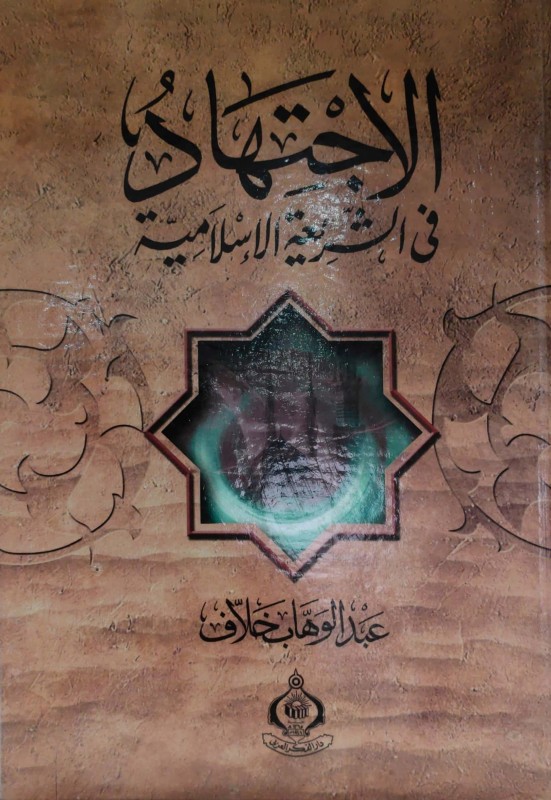 الاجْتِهَادُ
فى الشريعة الإسلامية
عَبْد الوَهَّاب خَلاَّف
دار الفكر العربى